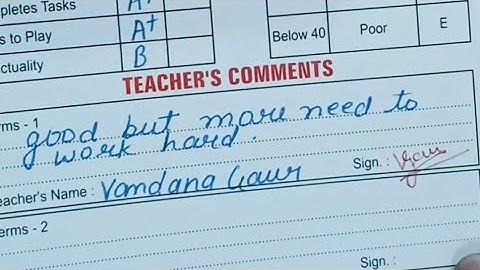 mpletes Tasks A+
s to Play A+
ctuality B
Below 40 Poor E
TEACHER'S COMMENTS
erms - 1 good but more need to
work hard.
eacher's Name : Vandana Gaur Sign. :
erms - 2
Sign. :